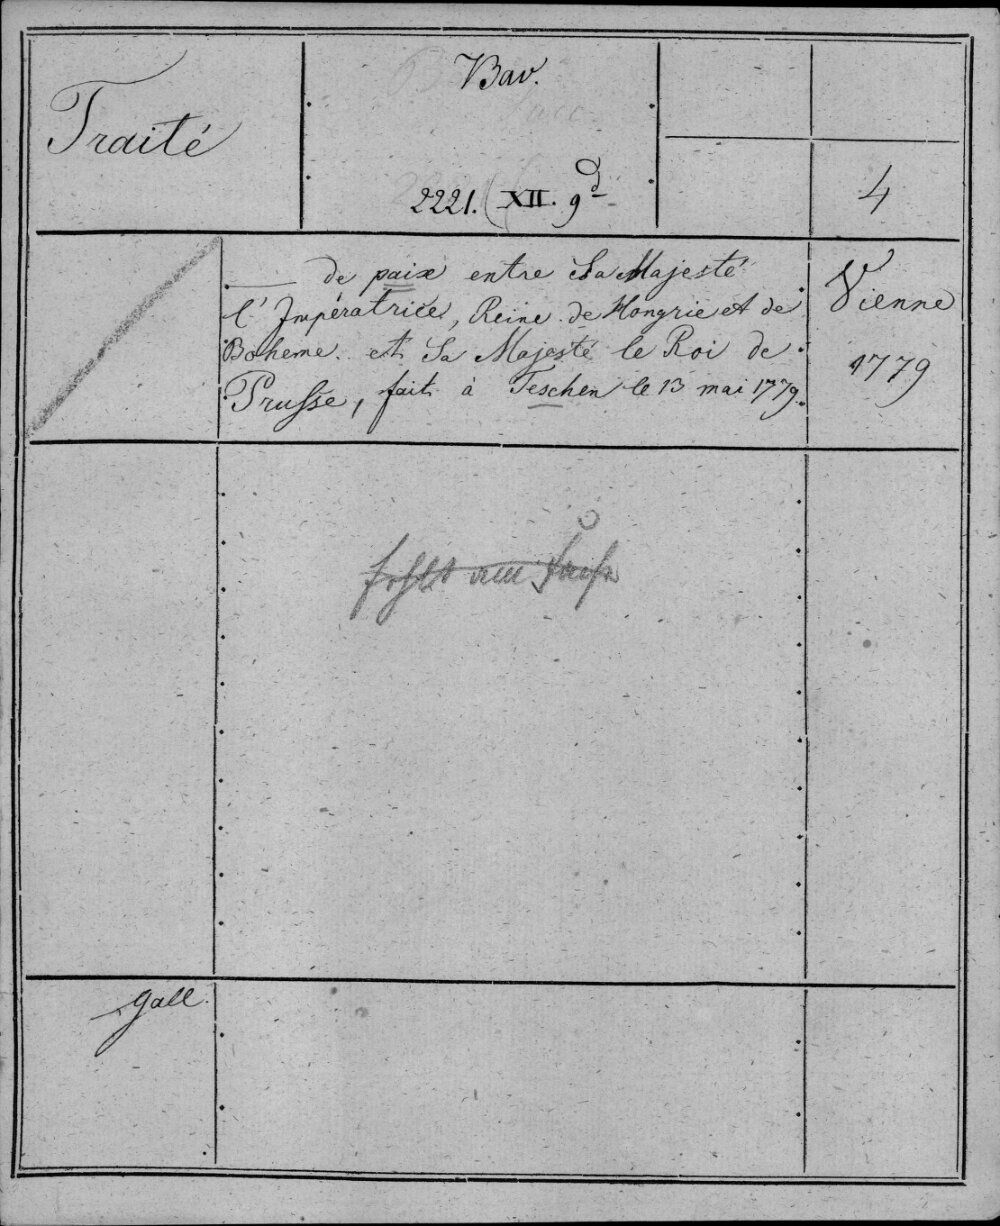 Traité
Bav.
2221. (XII. 9 d
4
de paix entre Sa Majesté
l'Impératrice, Reine de Hongrie et de
Boheme. et Sa Majesté le Roi de
Prusse, fait à Teschen le 13 mai 1779.
Vienne
1779
fehlt am
gall.